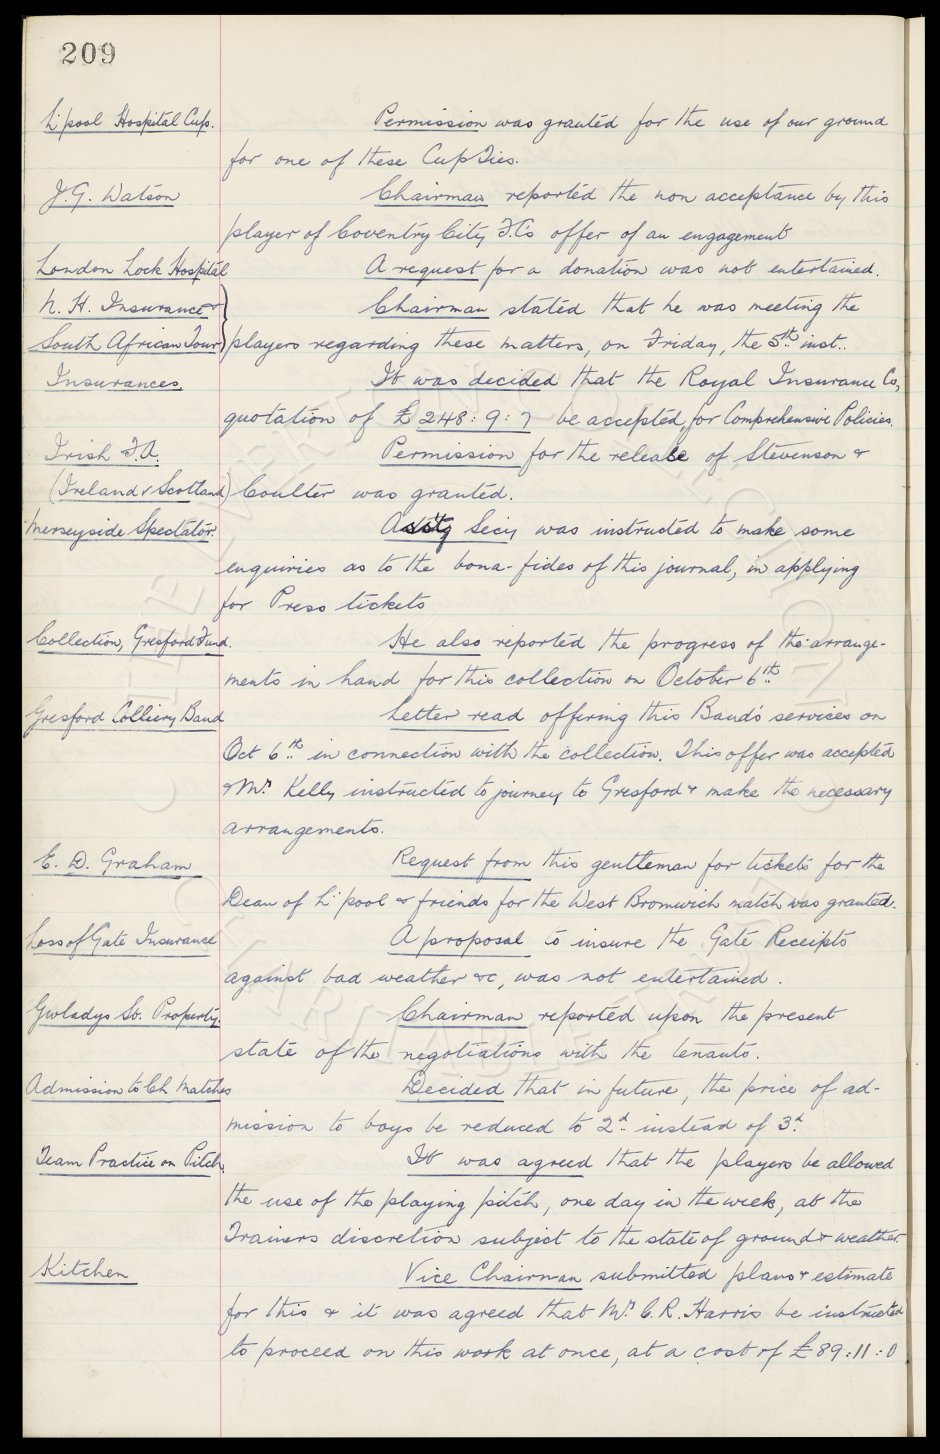 209
L'pool Hospital Cup. Permission was granted for the use of our ground
for one of these Cup Ties.
J.G. Watson Chairman reported the non acceptance by this
player of Coventry City F.Cs offer of an engagement
London Lock Hospital A request for a donation was not entertained.
N. H. Insurance & Chairman stated that he was meeting the
South African Tour } players regarding these matters, on Friday, the 5th inst..
Insurances It was decided that the Royal Insurance Co,
quotation of £248:9:7 be accepted, for Comprehensive Policies.
Irish F.A. Permission for the release of Stevenson &
(Ireland v Scotland) Coulter was granted.
Merseyside Spectator. Secy was instructed to make some
enquiries as to the bona-fides of this journal, in applying
for Press tickets
Collection, Gresford Fund. He also reported the progress of the arrange-
ments in hand for this collection on October 6th
Gresford Colliery Band Letter read offering this Band's services on
Oct 6th in connection with the collection. This offer was accepted
& Mr. Kelly instructed to journey to Gresford & make the necessary
arrangements.
E. D. Graham Request from this gentleman for tickets for the
Dean of L'pool & friends for the West Bromwich match was granted.
Loss of Gate Insurance A proposal to insure the Gate Receipts
against bad weather &c, was not entertained.
Gwladys St. Property. Chairman reported upon the present
state of the negotiations with the tenants.
Admission to Ch Matches Decided that in future, the price of ad-
mission to boys be reduced to 2d. instead of 3d.
Team Practice on Pitch. It was agreed that the players be allowed
the use of the playing pitch, one day in the week, at the
Trainers discretion subject to the state of ground & weather.
Kitchen Vice Chairman submitted plans & estimate
for this & it was agreed that Mr. C.R. Harris be instructed
to proceed on this work at once, at a cost of £89:11:0